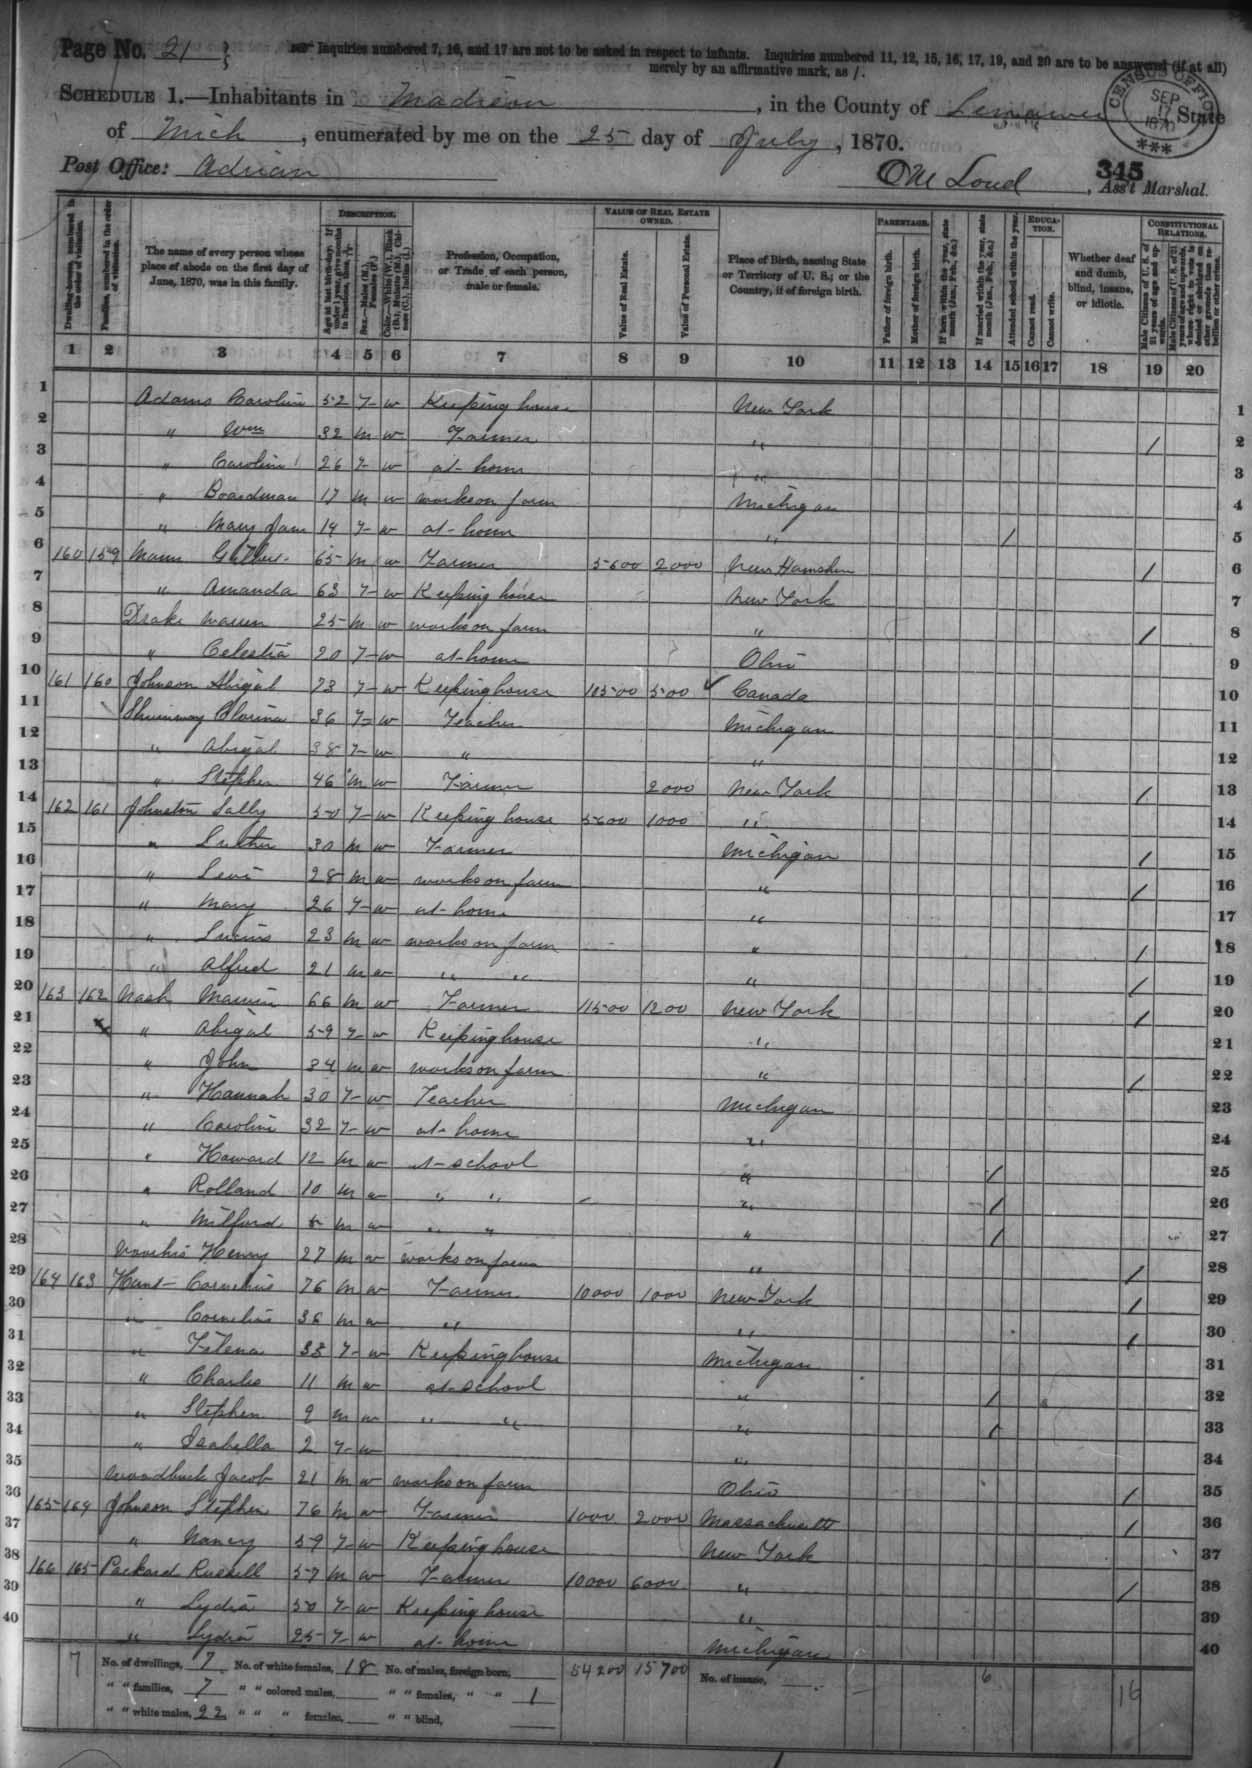 Page No. 21
Inquiries numbered 7, 16, and 17 are not to be asked in respect to infants. Inquiries numbered 11, 12, 15, 16, 17, 19, and 20 are to be answered (if at all) merely by an affirmative mark, as /.
SCHEDULE 1.—Inhabitants in Madison, in the County of Lenawee, State
of Mich, enumerated by me on the 25 day of July, 1870.
CENSUS OFFICE SEP 17 1870
Post Office: Adrian
345
Loud, Ass't Marshal.
DESCRIPTION.
VALUE OF REAL ESTATE OWNED.
PARENTAGE.
EDUCATION.
CONSTITUTIONAL RELATIONS.
Dwelling-houses, numbered in the order of visitation.
Families, numbered in the order of visitation.
The name of every person whose place of abode on the first day of June, 1870, was in this family.
Age at last birth-day. If under 1 year, give months in fractions, thus,
Sex.—Males (M.), Females (F.)
Color.—White (W.), Black (B.), Mulatto (M.), Chinese (C.), Indian (I.)
Profession, Occupation, or Trade of each person, male or female.
Value of Real Estate.
Value of Personal Estate.
Place of Birth, naming State or Territory of U. S.; or the Country, if of foreign birth.
Father of foreign birth.
Mother of foreign birth.
If born within the year, state month (Jan., Feb., &c.)
If married within the year, state month (Jan., Feb., &c.)
Attended school within the year.
Cannot read.
Cannot write.
Whether deaf and dumb, blind, insane, or idiotic.
Male Citizens of U. S. of 21 years of age and upwards.
Male Citizens of U. S. of 21 years of age and upwards, whose right to vote is denied or abridged on other grounds than rebellion or other crime.
1 2 3 4 5 6 7 8 9 10 11 12 13 14 15 16 17 18 19 20
1 Adams Caroline 52 F w Keeping house New York 1
2 " Wm 32 m w Farmer " / 2
3 " Caroline 26 F w at home " 3
4 " Boardman 17 m w works on farm Michigan 4
5 " Mary Jane 14 F w at home " / 5
6 160 159 Mann 65 m w Farmer 5600 2000 New Hamshire / 6
7 " Amanda 63 F w Keeping house New York 7
8 Drake Warren 25 m w works on farm " / 8
9 " Celestia 20 F w at home Ohio 9
10 161 160 Johnson Abigal 73 F w Keeping house 10500 500 Canada 10
11 Shumway 36 F w Teacher Michigan 11
12 " Abigal 38 F w " " 12
13 " Stephen 46 m w Farmer 2000 New York / 13
14 162 161 Johnston Sally 50 F w Keeping house 5600 1000 " 14
15 " Luther 30 m w Farmer Michigan / 15
16 " Levi 28 m w works on farm " / 16
17 " Mary 26 F w at home " 17
18 " Lucius 23 m w works on farm " / 18
19 " Alfred 21 m w " " " / 19
20 163 162 Nash Marvin 66 m w Farmer 11500 1200 New York / 20
21 " Abigal 59 F w Keeping house " 21
22 " John 34 m w works on farm " / 22
23 " Hannah 30 F w Teacher Michigan 23
24 " Caroline 32 F w at home " 24
25 " Howard 12 m w at school " / 25
26 " Rolland 10 m w " " " / 26
27 " Milford m w " " " / 27
28 Henry 27 m w works on farm " / 28
29 164 163 Hunt Cornelius 76 m w Farmer 10000 1000 New York / 29
30 " Cornelius 36 m w " " / 30
31 " Filena 33 F w Keeping house Michigan 31
32 " Charles 11 m w at school " / 32
33 " Stephen 9 m w " " " / 33
34 " Isabella 2 F w " 34
35 Jacob 21 m w works on farm Ohio / 35
36 165 164 Johnson Stephen 76 m w Farmer 1000 2000 Massachusetts / 36
37 " Nancy 59 F w Keeping house New York 37
38 166 165 Packard Russell 57 m w Farmer 10000 6000 " / 38
39 " Lydia 50 F w Keeping house " 39
40 " Lydia 25 F w at home Michigan 40
7 No. of dwellings, 7 No. of white females, 18 No. of males, foreign born, 54200 15700 No. of insane, 6 16
" " families, 7 " " colored males, " " females, " " 1
" " white males, 22 " " " females, " " blind,